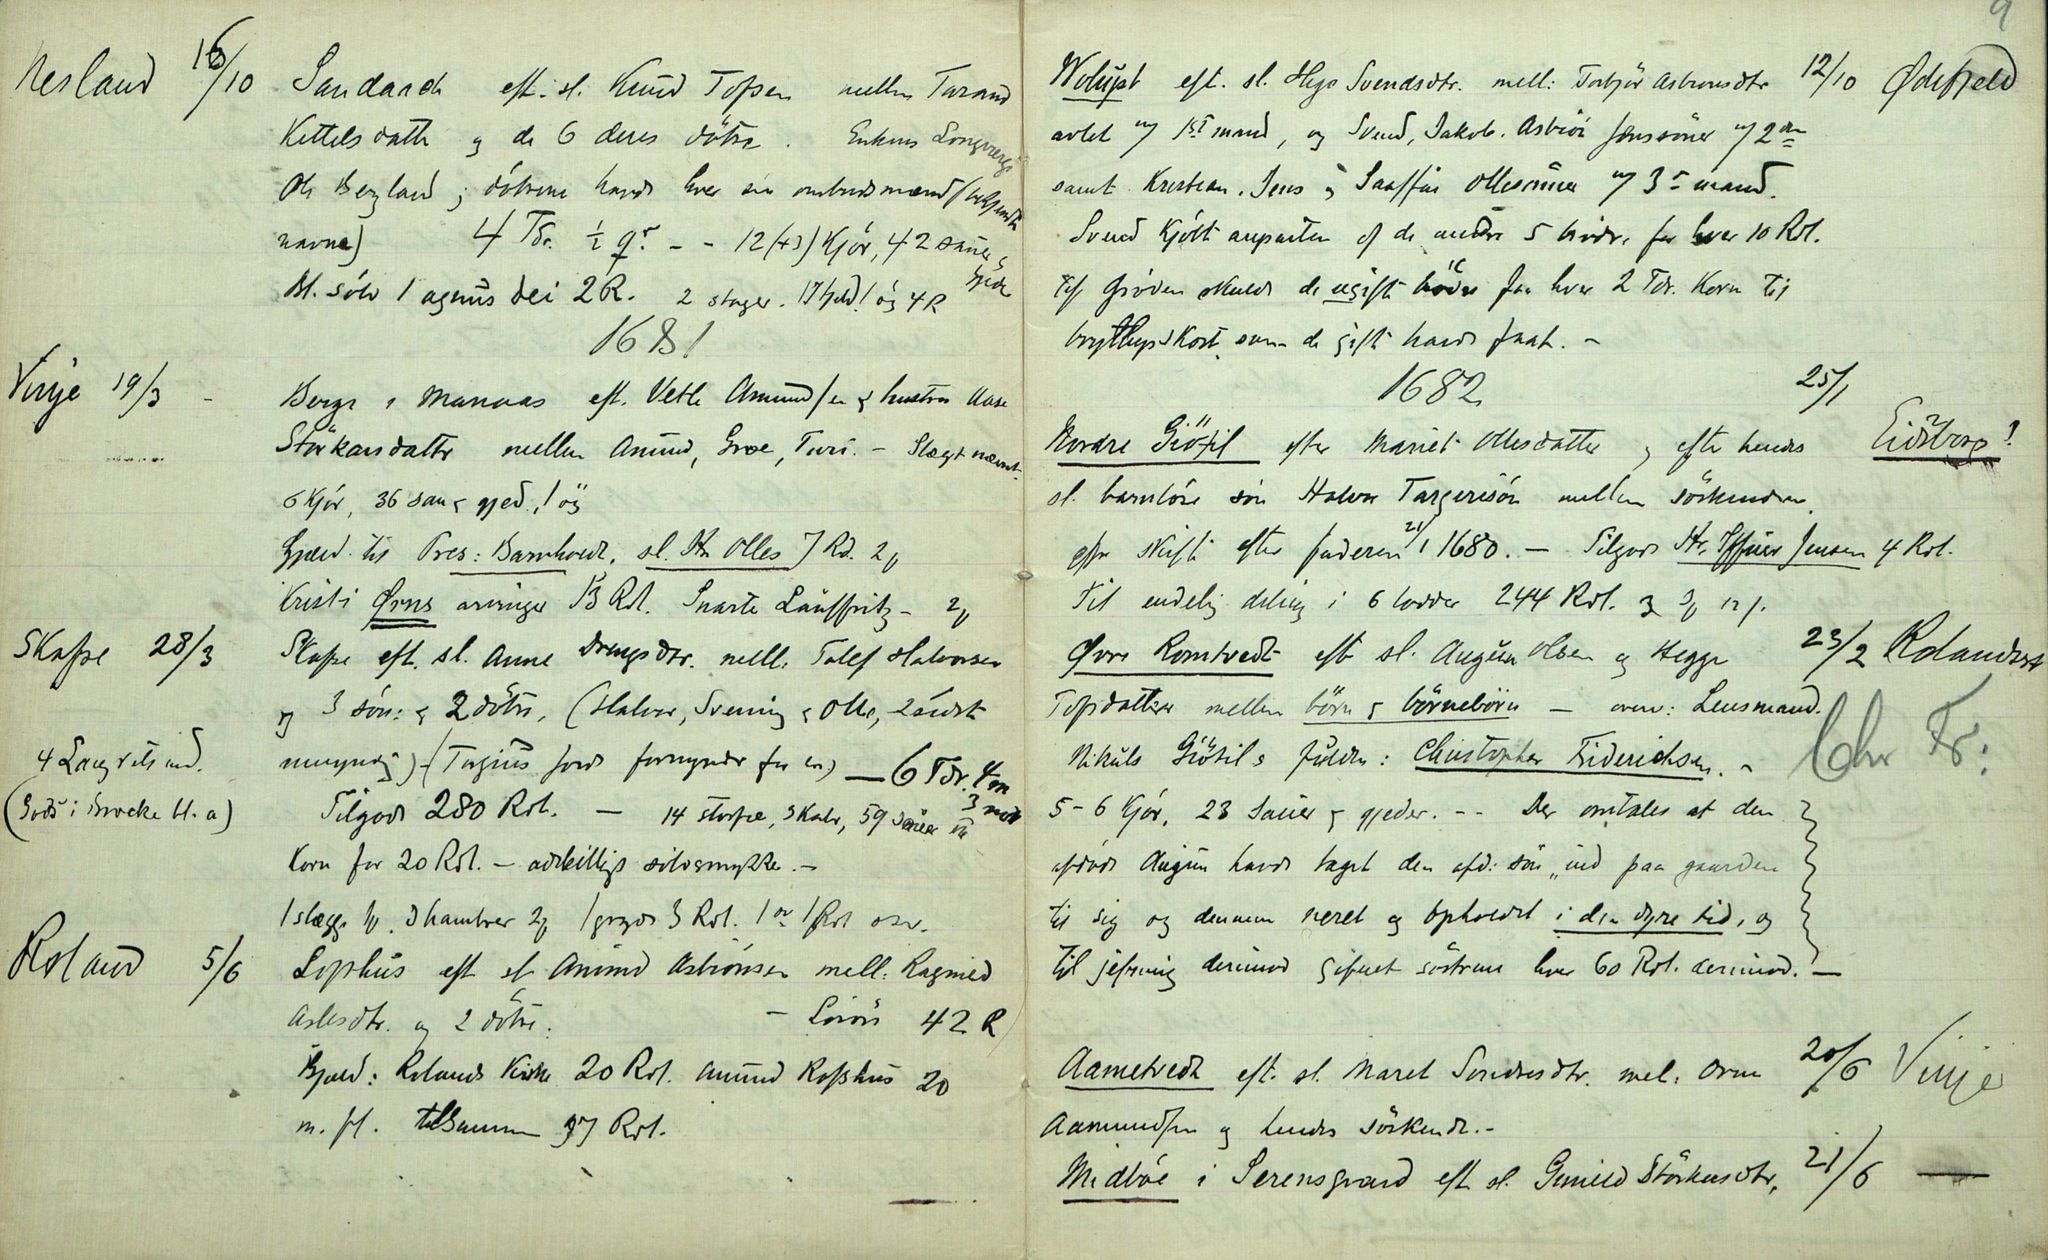 9
Nesland 16/10 Sandaack eft. sl. Knud Tofsen mellem Turand
Kittelsdatter og de 6 deres döttre. Enkens Longverge
Ole Bergland; döttrene havde hver sin ombudsmænd (velkjendte
navne) 4 Tdr. ½ qr. - - 12 (+3) Kjör, 42 sauer &
Bl. sölv 1 agnus dei 2 R. 2 stager. 1 ög 4 R gjeder
1681
Vinje 19/3 - Berge i Manaas eft. Vetle Amundsen & hustru Aase
Störkarsdatter mellem Amund, Groe, Turi. - Slægt nævnt.
6 Kjör, 36 sau & gjed, 1 ög
Gjæld til Pres: Barnholdt, sl. Hr Olles 7 Rd. 2
Kristi Örns arvinger 13 Rdl. Snarte Lauffritz - 2
Skafse 28/3 Skafse eft. sl. Anne Drengsdtr. mell. Tolef Halvorsen
og 3 sön: & 2 döttre, (Halvor, Svening & Olle, 2 ældst
4 Laugrets md. myndig) - (Targius Jord formynder for en) — 6 Tdr. 4 m
(Gods i Brocke bl. a) Tilgode 280 Rdl. — 14 storfæ, 3 Kalv, 59 sauer 3 mrk
Korn for 20 Rdl. - adskilligt sölvsmykke. -
1 slægge 3 hamrer 1 gryde 3 Rdl. 1 1 Rdl osv.
Roland 5/6 Lophus eft sl Amund Asbiönsen mell: Ragnild
Aslesdtr. og 2 döttre. - Lösöre 42 R
Gjæld: Rolands Kirke 20 Rdl. Amund Rofshus 20
m. fl. tilsammen 97 Rdl.
Woligst eft. sl. Hege Svendsdtr. mell: Torbjör Asbronsdtr 12/10 Ødefjeld
avlet m/ 1st mand, og Svend, Jakob, Asbiör Jenssöner m/ 2den
samt Kristian, Jens & Saaffue Ollesönner m/ 3die mand.
Svend Kjöbt anparten af de andre 5 brödre for hver 10 Rdl.
Af Gröden skulde de ugifte brödre faa hver 2 Tdr. Korn til
bryllupskost som de gifte havde faaet. -
1682 25/1
Nordre Giötil efter Mariet Ollesdatter & efter hendes Eidsborg?
sl. barnlöse sön Halvor Targerisön mellem sörkendene
efter skifte efter faderen 21/1 1680. — Tilgode Hr. Iffuer Jensen 4 Rdl.
Til endelig deling i 6 lodder 244 Rdl. 3 12 s.
Øvre Romtvedt eft sl. Augun Olsen og Hegge 23/2 Rolandsst
Tofsdatter mellem börn & börnebörn — over: Lensmand. Chr Fr:
Nikuls Giötil s fuldm: Christopher Friderichsen. -
5-6 Kjör, 23 sauer & gjeder. -- Der omtales at den
afdöde Augun havde taget den afd: sön "ind paa gaarden
til sig og dennem neret og opholdet i den dyre tid, og
til jefning derimod gifuet söstrene hver 60 Rdl. derimod. —
Aametvedt eft. sl. Maret Sondresdtr. mel: Orm 20/6 Vinje
Aamundsen og hendes sörkende. -
Midböe i Serensgaard eft sl. Gunild Störkersdtr, 21/6 —